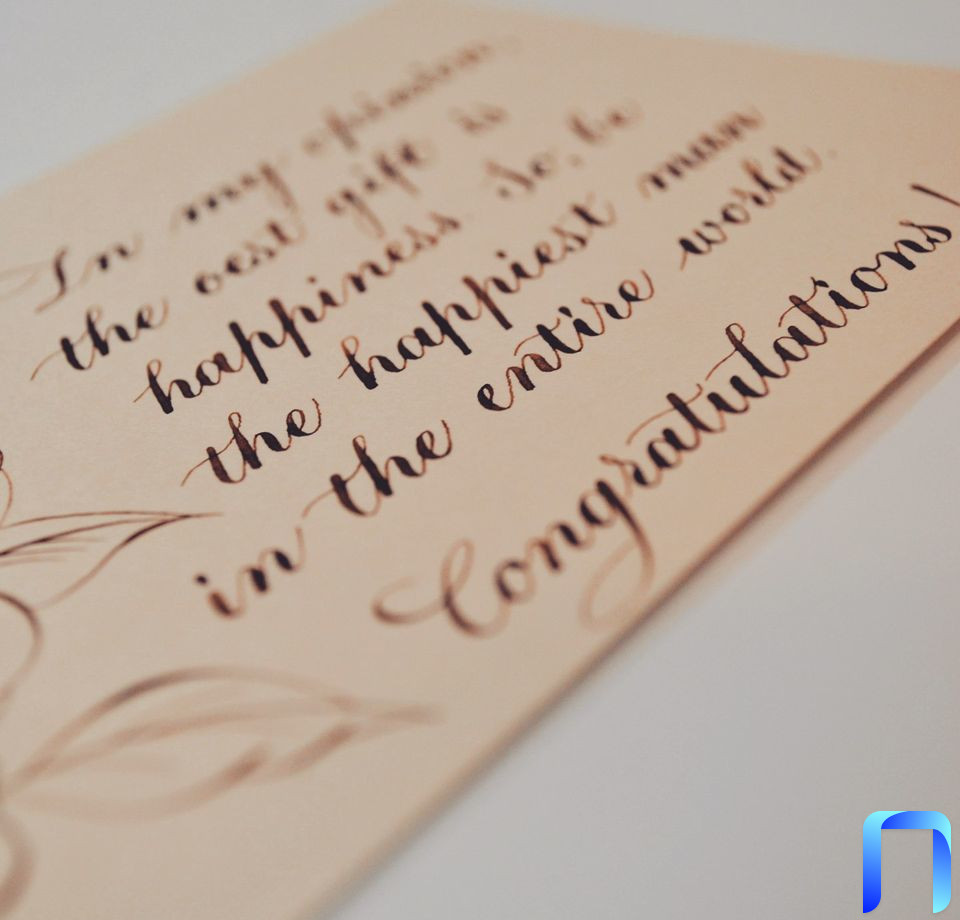 In my opinion,
the best gift is
happiness. So, be
the happiest man
in the entire world.
Congratulations!